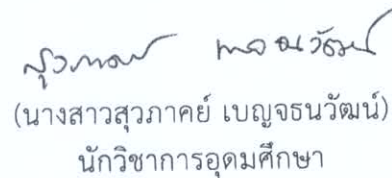 สุวภาคย์ เบญจธนวัฒน์
(นางสาวสุวภาคย์ เบญจธนวัฒน์)
นักวิชาการอุดมศึกษา